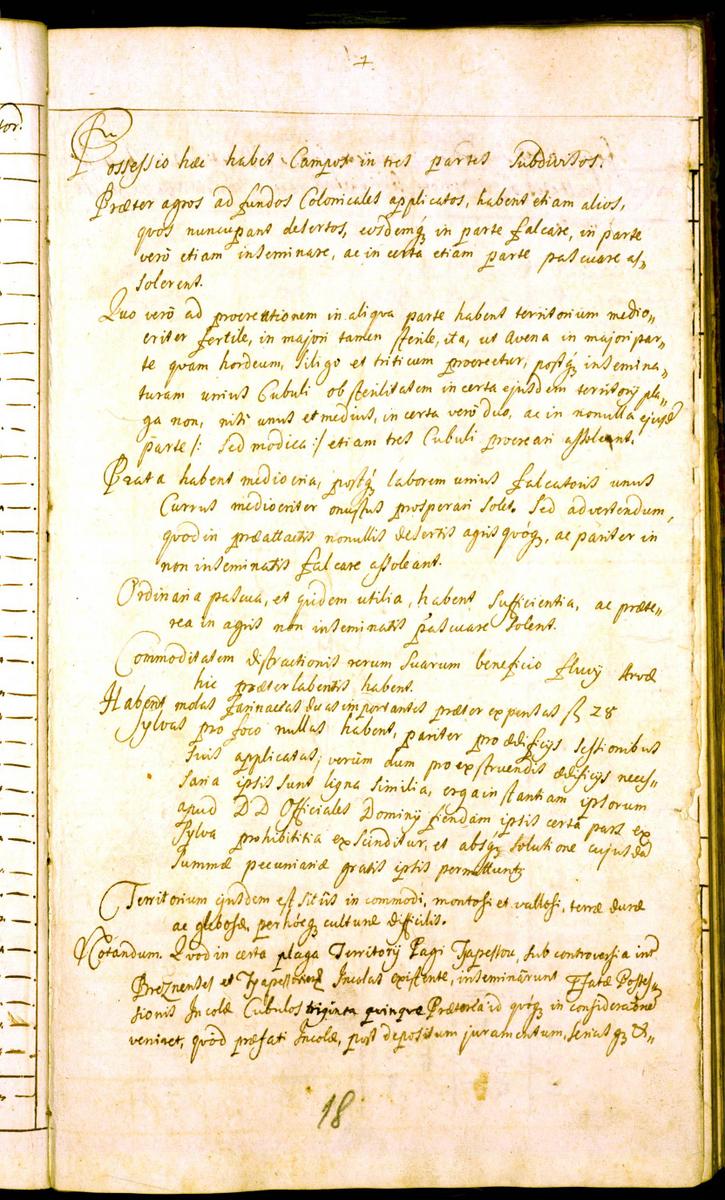 7
tor.
Possessio hæc habet Campos in tres partes Subdivisos.
Præter agros ad fundos Colonicales applicatos, habent etiam alios,
quos nuncupant desertos, eosdemq́; in parte falcare, in parte
verò etiam inseminare, ac in certa etiam parte pascuare as„
solerent.
Quo verò ad procreationem in aliqva parte habent territorium medio„
criter fertile, in majori tamen sterile, ita, ut Avena in majori par„
te quam hordeum, siligo et triticum procreetur, postq́; insemina„
turam unius Cubuli ob sterilitatem in certa ejusdem territorÿ pla„
ga non, nisi unus et medius, in certa verò duo, ac in nonulla ejusd
parte /: sed modica :/ etiam tres Cubuli procreari assoleant.
Prata habent mediocria, postq́; laborem unius falcatoris unus
Currus mediocriter onustus prosperari solet. Sed advertendum,
quod in præattactis nonullis desertis agris quóq;, ac pariter in
non inseminatis falcare assoleant.
Ordinaria pascua, et quidem utilia, habent sufficientia, ac præte„
rea in agris non inseminatis pascuare solent.
Commoditatem distractionis rerum suarum beneficio fluvÿ Arvæ
hic præterlabentis habent.
Habent molas farinaceas duas importantes præter expensas f 28
Sylvas pro foco nullas habent, pariter pro ædificÿs sessionibus
suis applicatas; verùm dum pro exstruendis ædificÿs neces„
saria ipsis sunt ligna similia, erga instantiam ipsorum
apud D D Officiales Dominÿ fiendam ipsis certa pars ex
sylva prohibititia exscinditur, et absq; solutione cujusdā
summæ pecuniariæ gratis ipsis permittunt:
Territorium ejusdem est sitûs incommodi, montosi et vallosi, terræ duræ
ac glebosæ, per hócq; culturæ difficilis.
Notandum. Quod in certa plaga Territorÿ Pagi Tzapessou, sub controversia int
Breznenses et Incolas existente, inseminârunt Possess„
sionis Incolæ Cubulos triginta quinque Præterea id quoq; in consideratione
veniret, quòd præfati Incolæ, post depositum juramentum,
18